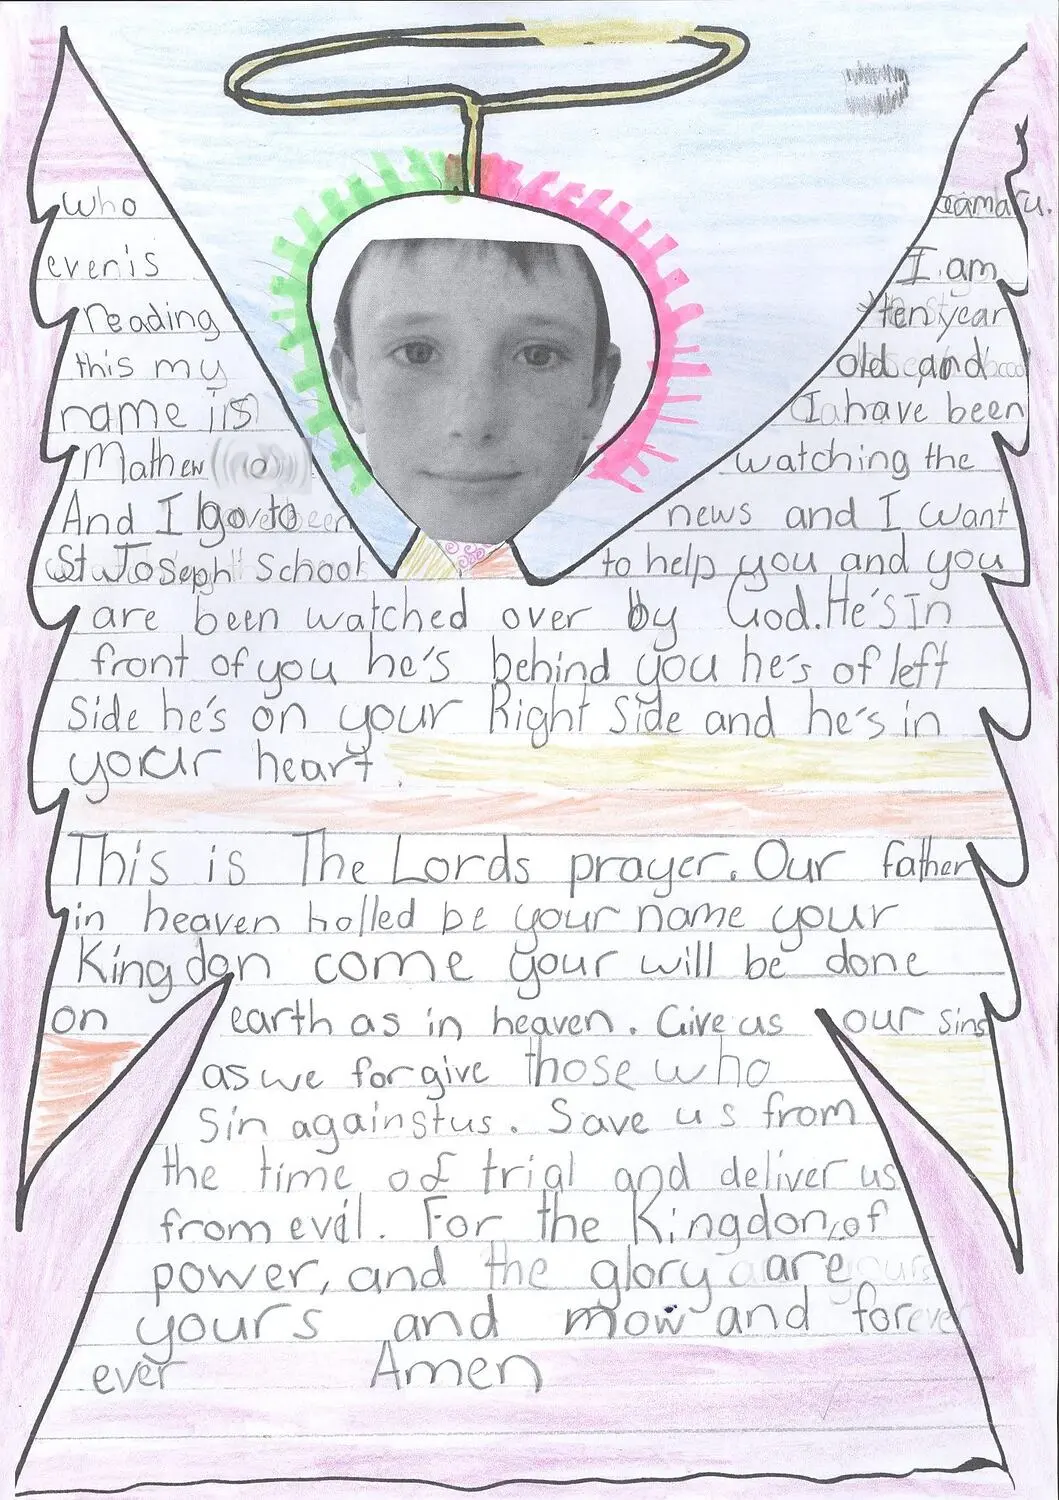 who
evenis
reading
this my
name is
Mathew
And I go to
St Joseph School
Oamaru.
I am
ten year
old and
I have been
watching the
news and I want
to help you and you
are been watched over by God. He's In
front of you he's behind you he's of left
side he's on your Right side and he's in
your heart
This is The Lords prayer. Our father
in heaven holled be your name your
Kingdon come your will be done
on earth as in heaven. Give us our sins
as we forgive those who
Sin against us. Save us from
the time of trial and deliver us
from evil. For the Kingdon, of
power, and the glory are
yours and now and for
ever Amen